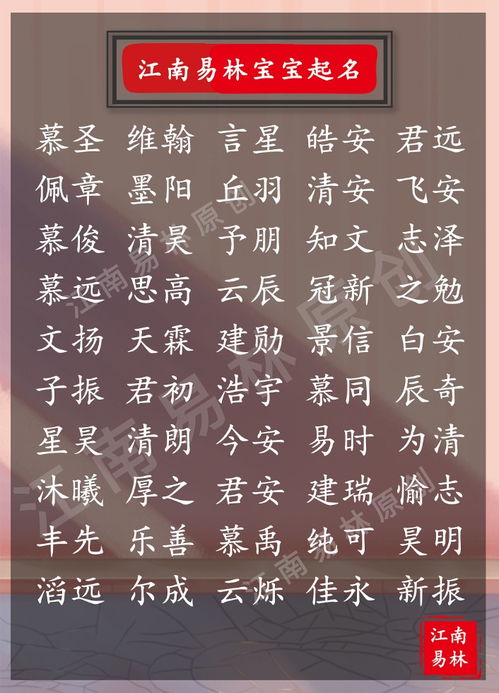 江南易林宝宝起名
慕圣 维翰 言星 皓安 君远
佩章 墨阳 丘羽 清安 飞安
慕俊 清昊 予朋 知文 志泽
慕远 思高 云辰 冠新 之勉
文扬 天霖 建勋 景信 白安
子振 君初 浩宇 慕同 辰奇
星昊 清朗 今安 易时 为清
沐曦 厚之 君安 建瑞 愉志
丰先 乐善 慕禹 纯可 昊明
滔远 尔成 云烁 佳永 新振
江南易林原创
江南易林原创
江南易林原创
江南
易林